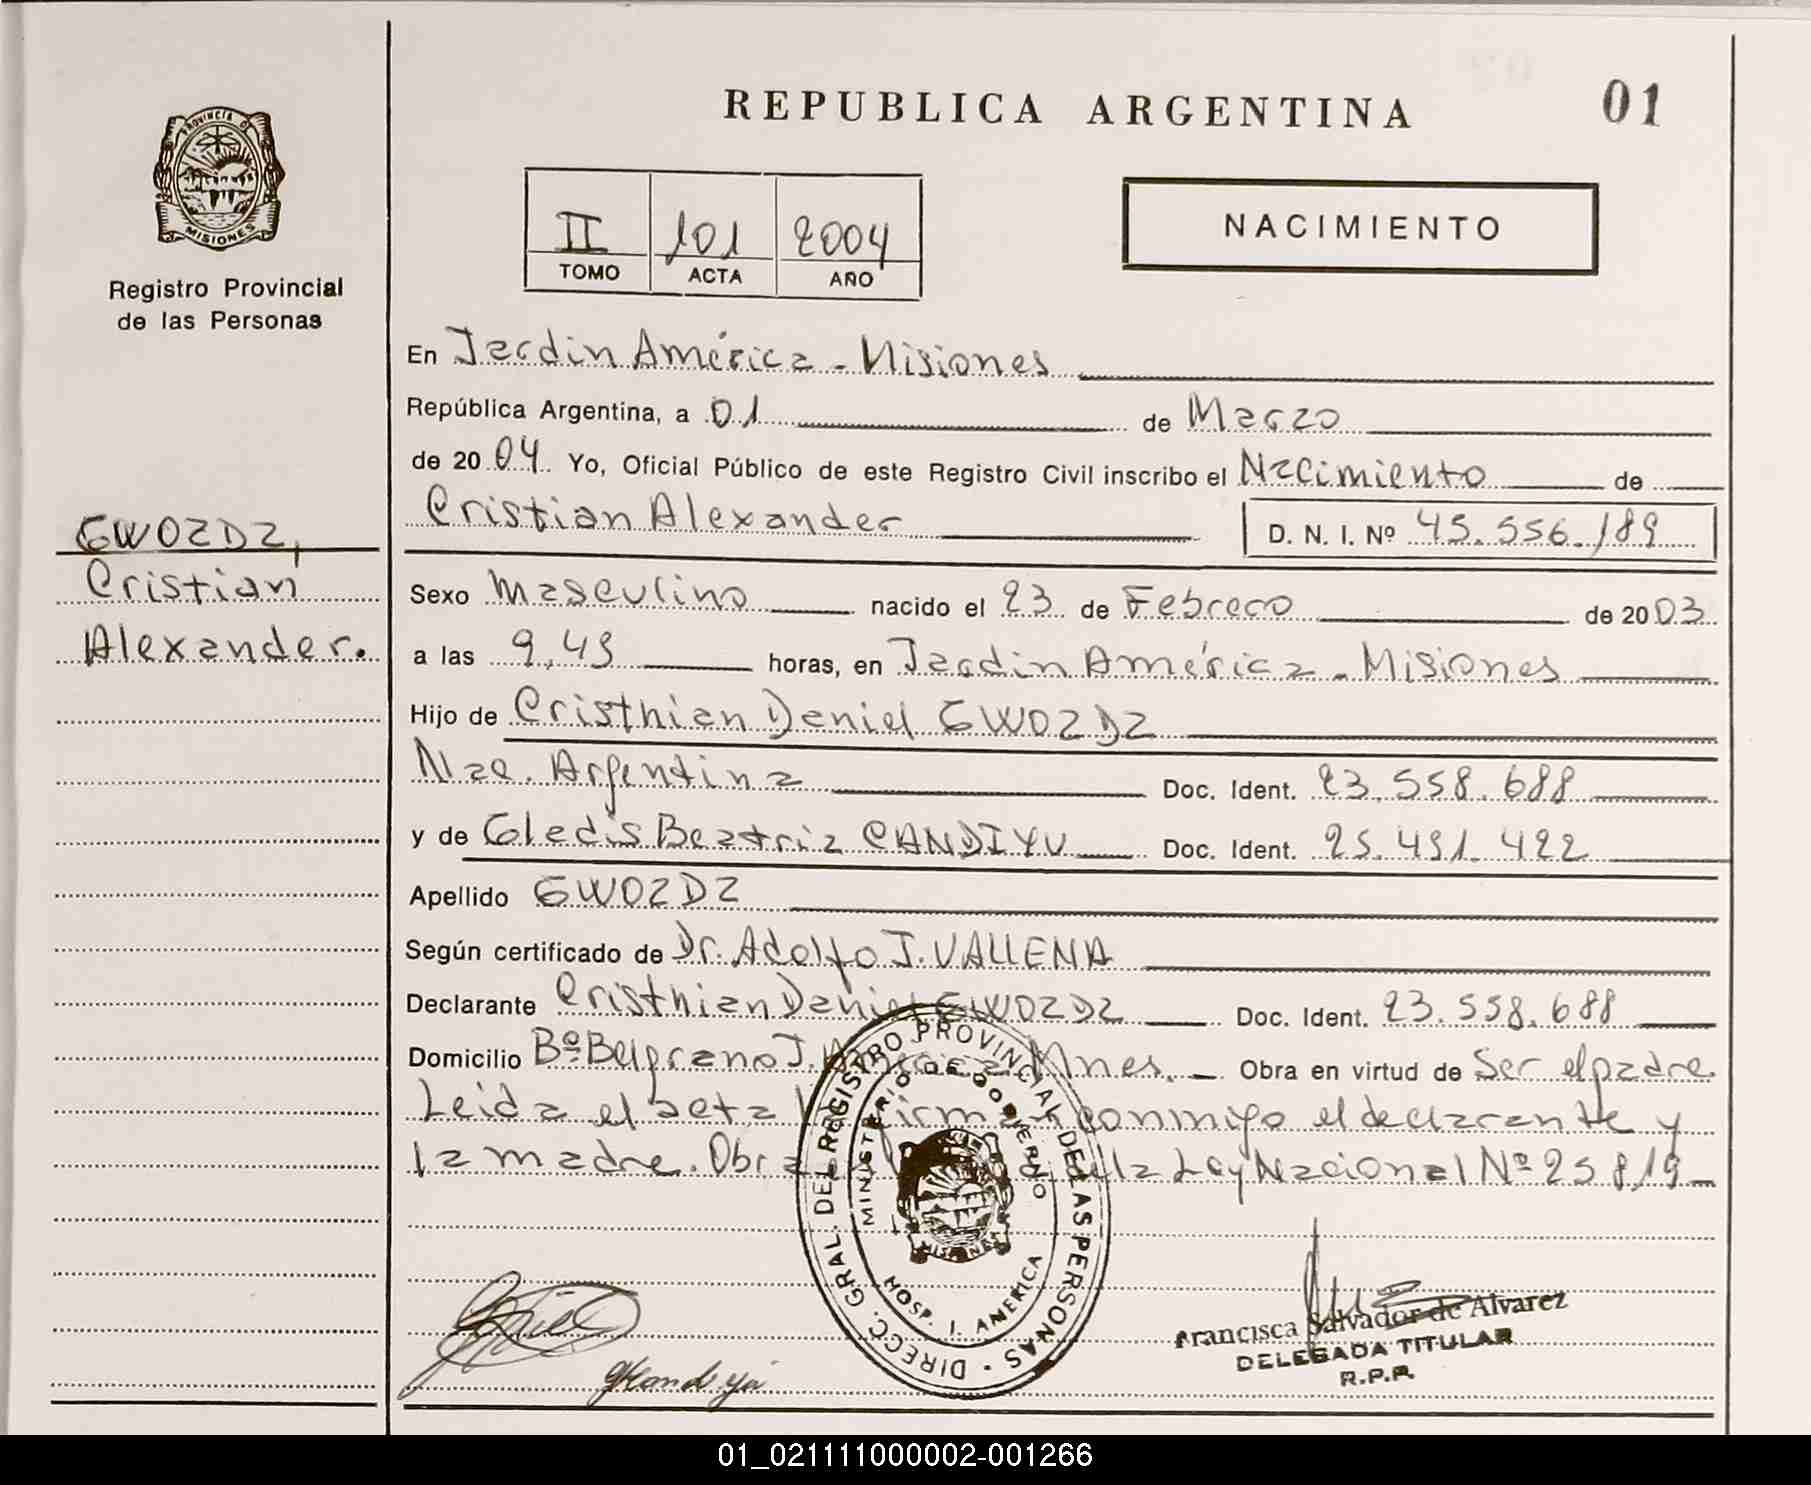 REPUBLICA ARGENTINA
01
PROVINCIA DE
MISIONES
Registro Provincial
de las Personas
II 101 2004
TOMO ACTA AÑO
NACIMIENTO
En Jardin América - Misiones
República Argentina, a 01 de Marzo
de 2004 Yo, Oficial Público de este Registro Civil inscribo el Nacimiento de
Cristian Alexander D. N. I. Nº 45.556.189
GWOZDZ,
Cristian
Alexander.
Sexo Masculino nacido el 23 de Febrero de 2003
a las 9,45 horas, en Jardin América - Misiones
Hijo de Cristhian Daniel GWOZDZ
Nac. Argentina Doc. Ident. 23.558.688
y de Gledis Beatriz CANDIYU Doc. Ident. 25.491.422
Apellido GWOZDZ
Según certificado de Dr. Adolfo J. VALLENA
Declarante Cristhian Daniel GWOZDZ Doc. Ident. 23.558.688
Domicilio Bº Belgrano J. América Mnes. Obra en virtud de Ser el padre.
Leida el acta firman conmigo el declarante y
la madre. Obra de la Ley Nacional Nº 25819
DIRECC. GRAL. DEL REGISTRO PROVINCIAL DE LAS PERSONAS
MINISTERIO DE GOBIERNO
MISIONES
HOSP. J. AMERICA
Francisca Salvador de Alvarez
DELEGADA TITULAR
R.P.P.
01_021111000002-001266